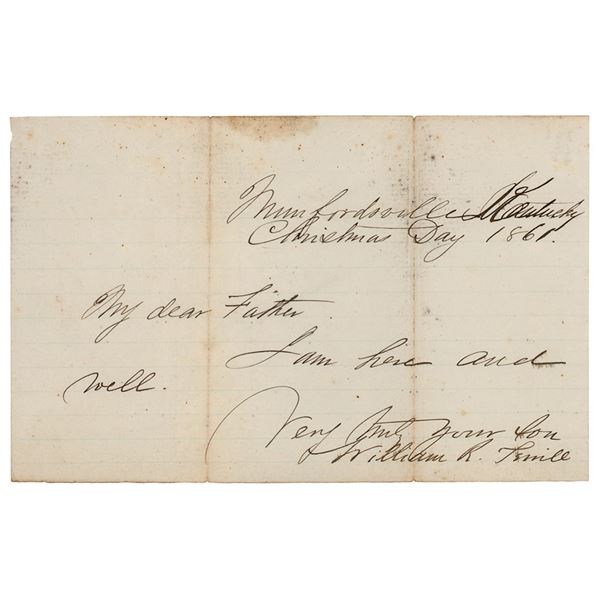 Munfordsville Kentucky
Christmas Day 1861.
My dear Father
I am here and
well.
Very truly your son
William R. Terrill